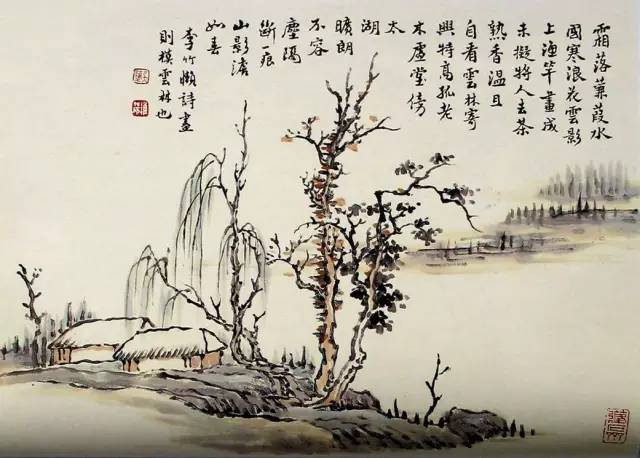 霜落蒹葭水
國寒浪花雲影
上漁竿畫成
未擬將人去茶
熟香溫且
自看雲林寄
興特高孤老
木虛堂傍
太
湖
曠朗
不容
塵隔
斷一痕
山影澹
如無
李竹嬾詩畫
則模雲林也